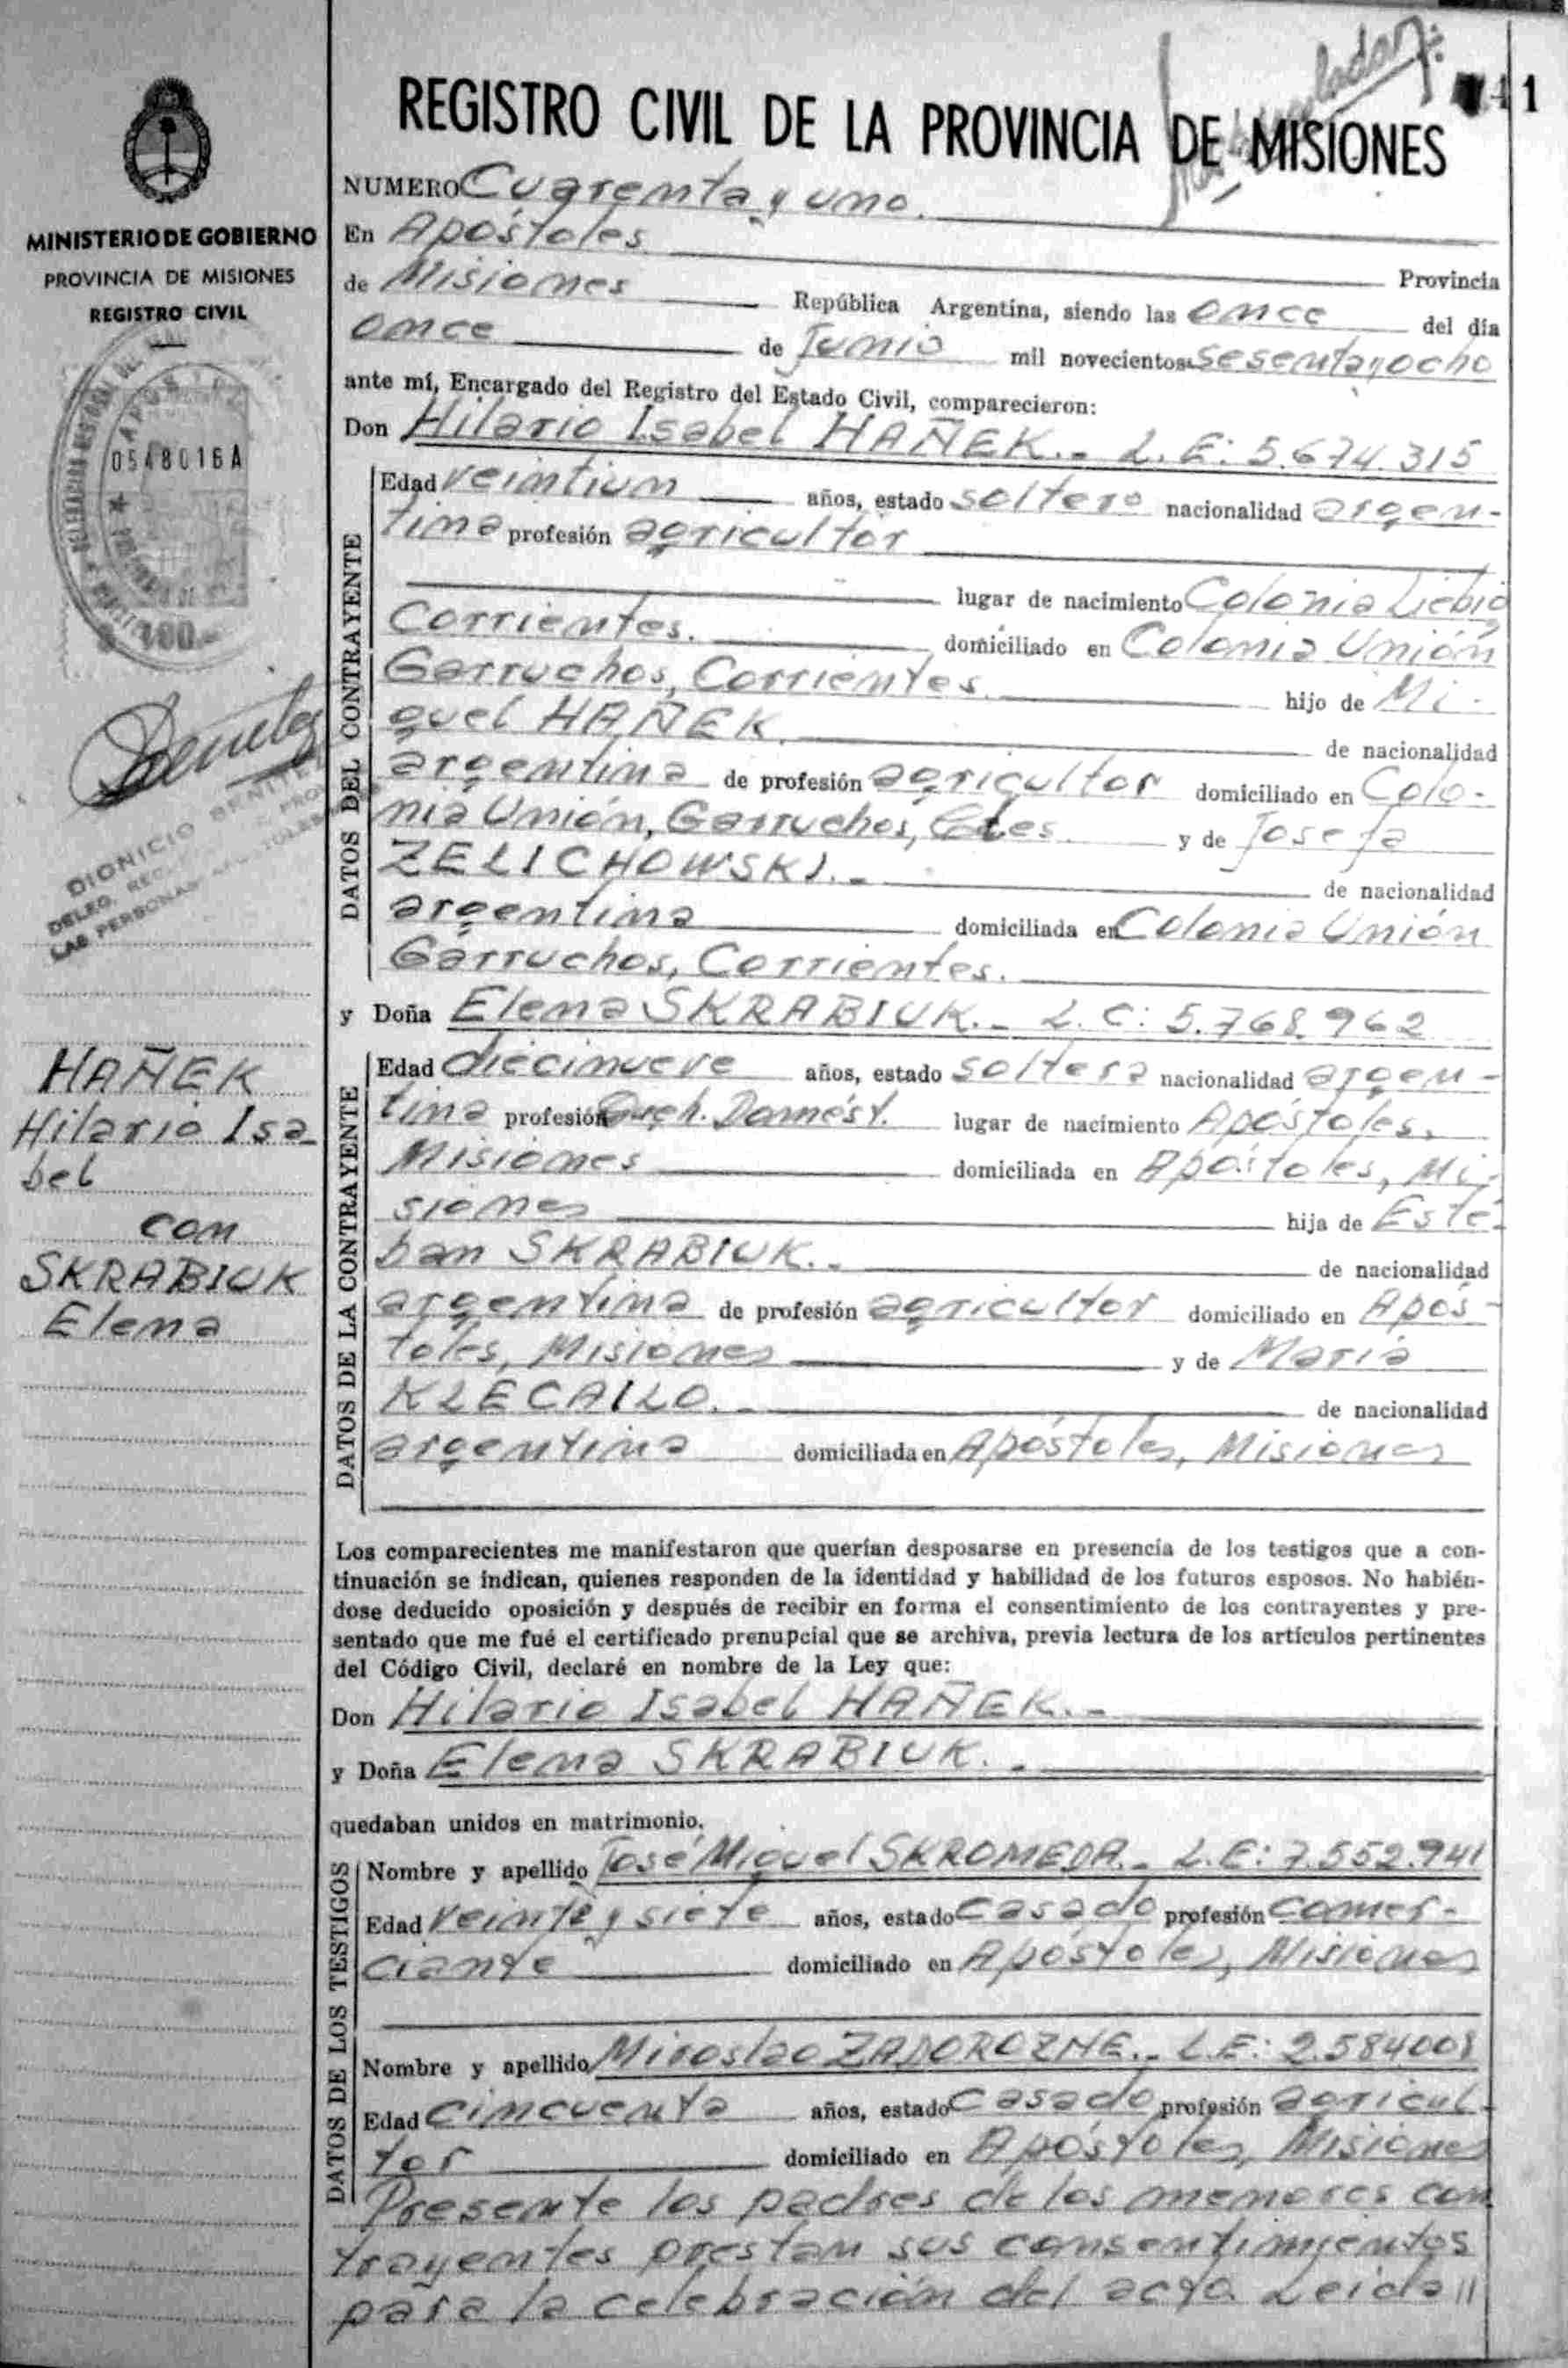 REGISTRO CIVIL DE LA PROVINCIA DE MISIONES
MINISTERIO DE GOBIERNO
PROVINCIA DE MISIONES
REGISTRO CIVIL
0548016A
100
DIONICIO BENITEZ
DELEG. REG.
LAS PERSONAS
HAÑEK
Hilario Isa
bel
con
SKRABIUK
Elena
NUMERO Cuarenta y uno.
En Apóstoles Provincia
de Misiones República Argentina, siendo las once del día
once de Junio mil novecientos sesenta y ocho
ante mí, Encargado del Registro del Estado Civil, comparecieron:
Don Hilario Isabel HAÑEK.- L.E: 5.674.315
DATOS DEL CONTRAYENTE
Edad veintiun años, estado soltero nacionalidad argen-
tina profesión agricultor
lugar de nacimiento Colonia Liebig
Corrientes. domiciliado en Colonia Unión
Garruchos, Corrientes hijo de Mi-
guel HAÑEK de nacionalidad
argentina de profesión agricultor domiciliado en Colo-
nia Unión, Garruchos, Ctes y de Josefa
ZELICHOWSKI.- de nacionalidad
argentina domiciliada en Colonia Unión
Garruchos, Corrientes.
y Doña Elena SKRABIUK.- L.C: 5.768.962
DATOS DE LA CONTRAYENTE
Edad diecinueve años, estado soltera nacionalidad argen-
tina profesión Queh. Domést. lugar de nacimiento Apóstoles,
Misiones domiciliada en Apóstoles, Mi
siones hija de Este-
ban SKRABIUK.- de nacionalidad
argentina de profesión agricultor domiciliado en Após-
toles, Misiones y de María
KLECAILO.- de nacionalidad
argentina domiciliada en Apóstoles, Misiones
Los comparecientes me manifestaron que querían desposarse en presencia de los testigos que a con-
tinuación se indican, quienes responden de la identidad y habilidad de los futuros esposos. No habién-
dose deducido oposición y después de recibir en forma el consentimiento de los contrayentes y pre-
sentado que me fué el certificado prenupcial que se archiva, previa lectura de los artículos pertinentes
del Código Civil, declaré en nombre de la Ley que:
Don Hilario Isabel HAÑEK.-
y Doña Elena SKRABIUK.-
quedaban unidos en matrimonio.
DATOS DE LOS TESTIGOS
Nombre y apellido José Miguel SKROMEDA.- L.E: 7.552.941
Edad veinte y siete años, estado casado profesión comer-
ciante domiciliado en Apóstoles, Misiones
Nombre y apellido Miroslao ZAPOROZNE.- L.E: 2.584008
Edad cincuenta años, estado casado profesión agricul-
tor domiciliado en Apóstoles, Misiones
Presente los padres de los menores con
trayentes prestan sus consentimientos
para la celebración del acta Leida //